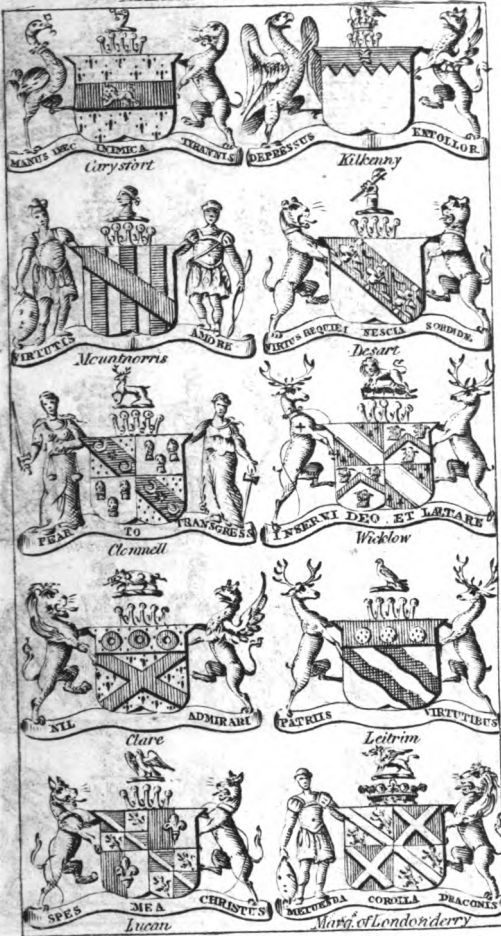 MANUS HEC INIMICA TYRANNIS
Carysfort
DEPRESSUS EXTOLLOR
Kilkenny
VIRTUTIS AMORE
Mountnorris
VIRTUS REQUIEI NESCIA SORDIDE.
Desart
FEAR TO TRANSGRESS
Clonmell
INSERVI DEO . ET LÆTARE
Wicklow
NIL ADMIRARI
Clare
PATRIIS VIRTUTIBUS
Leitrim
SPES MEA CHRISTUS
Lucan
METUENDA COROLLA DRACONIS
Marqs. of Londonderry